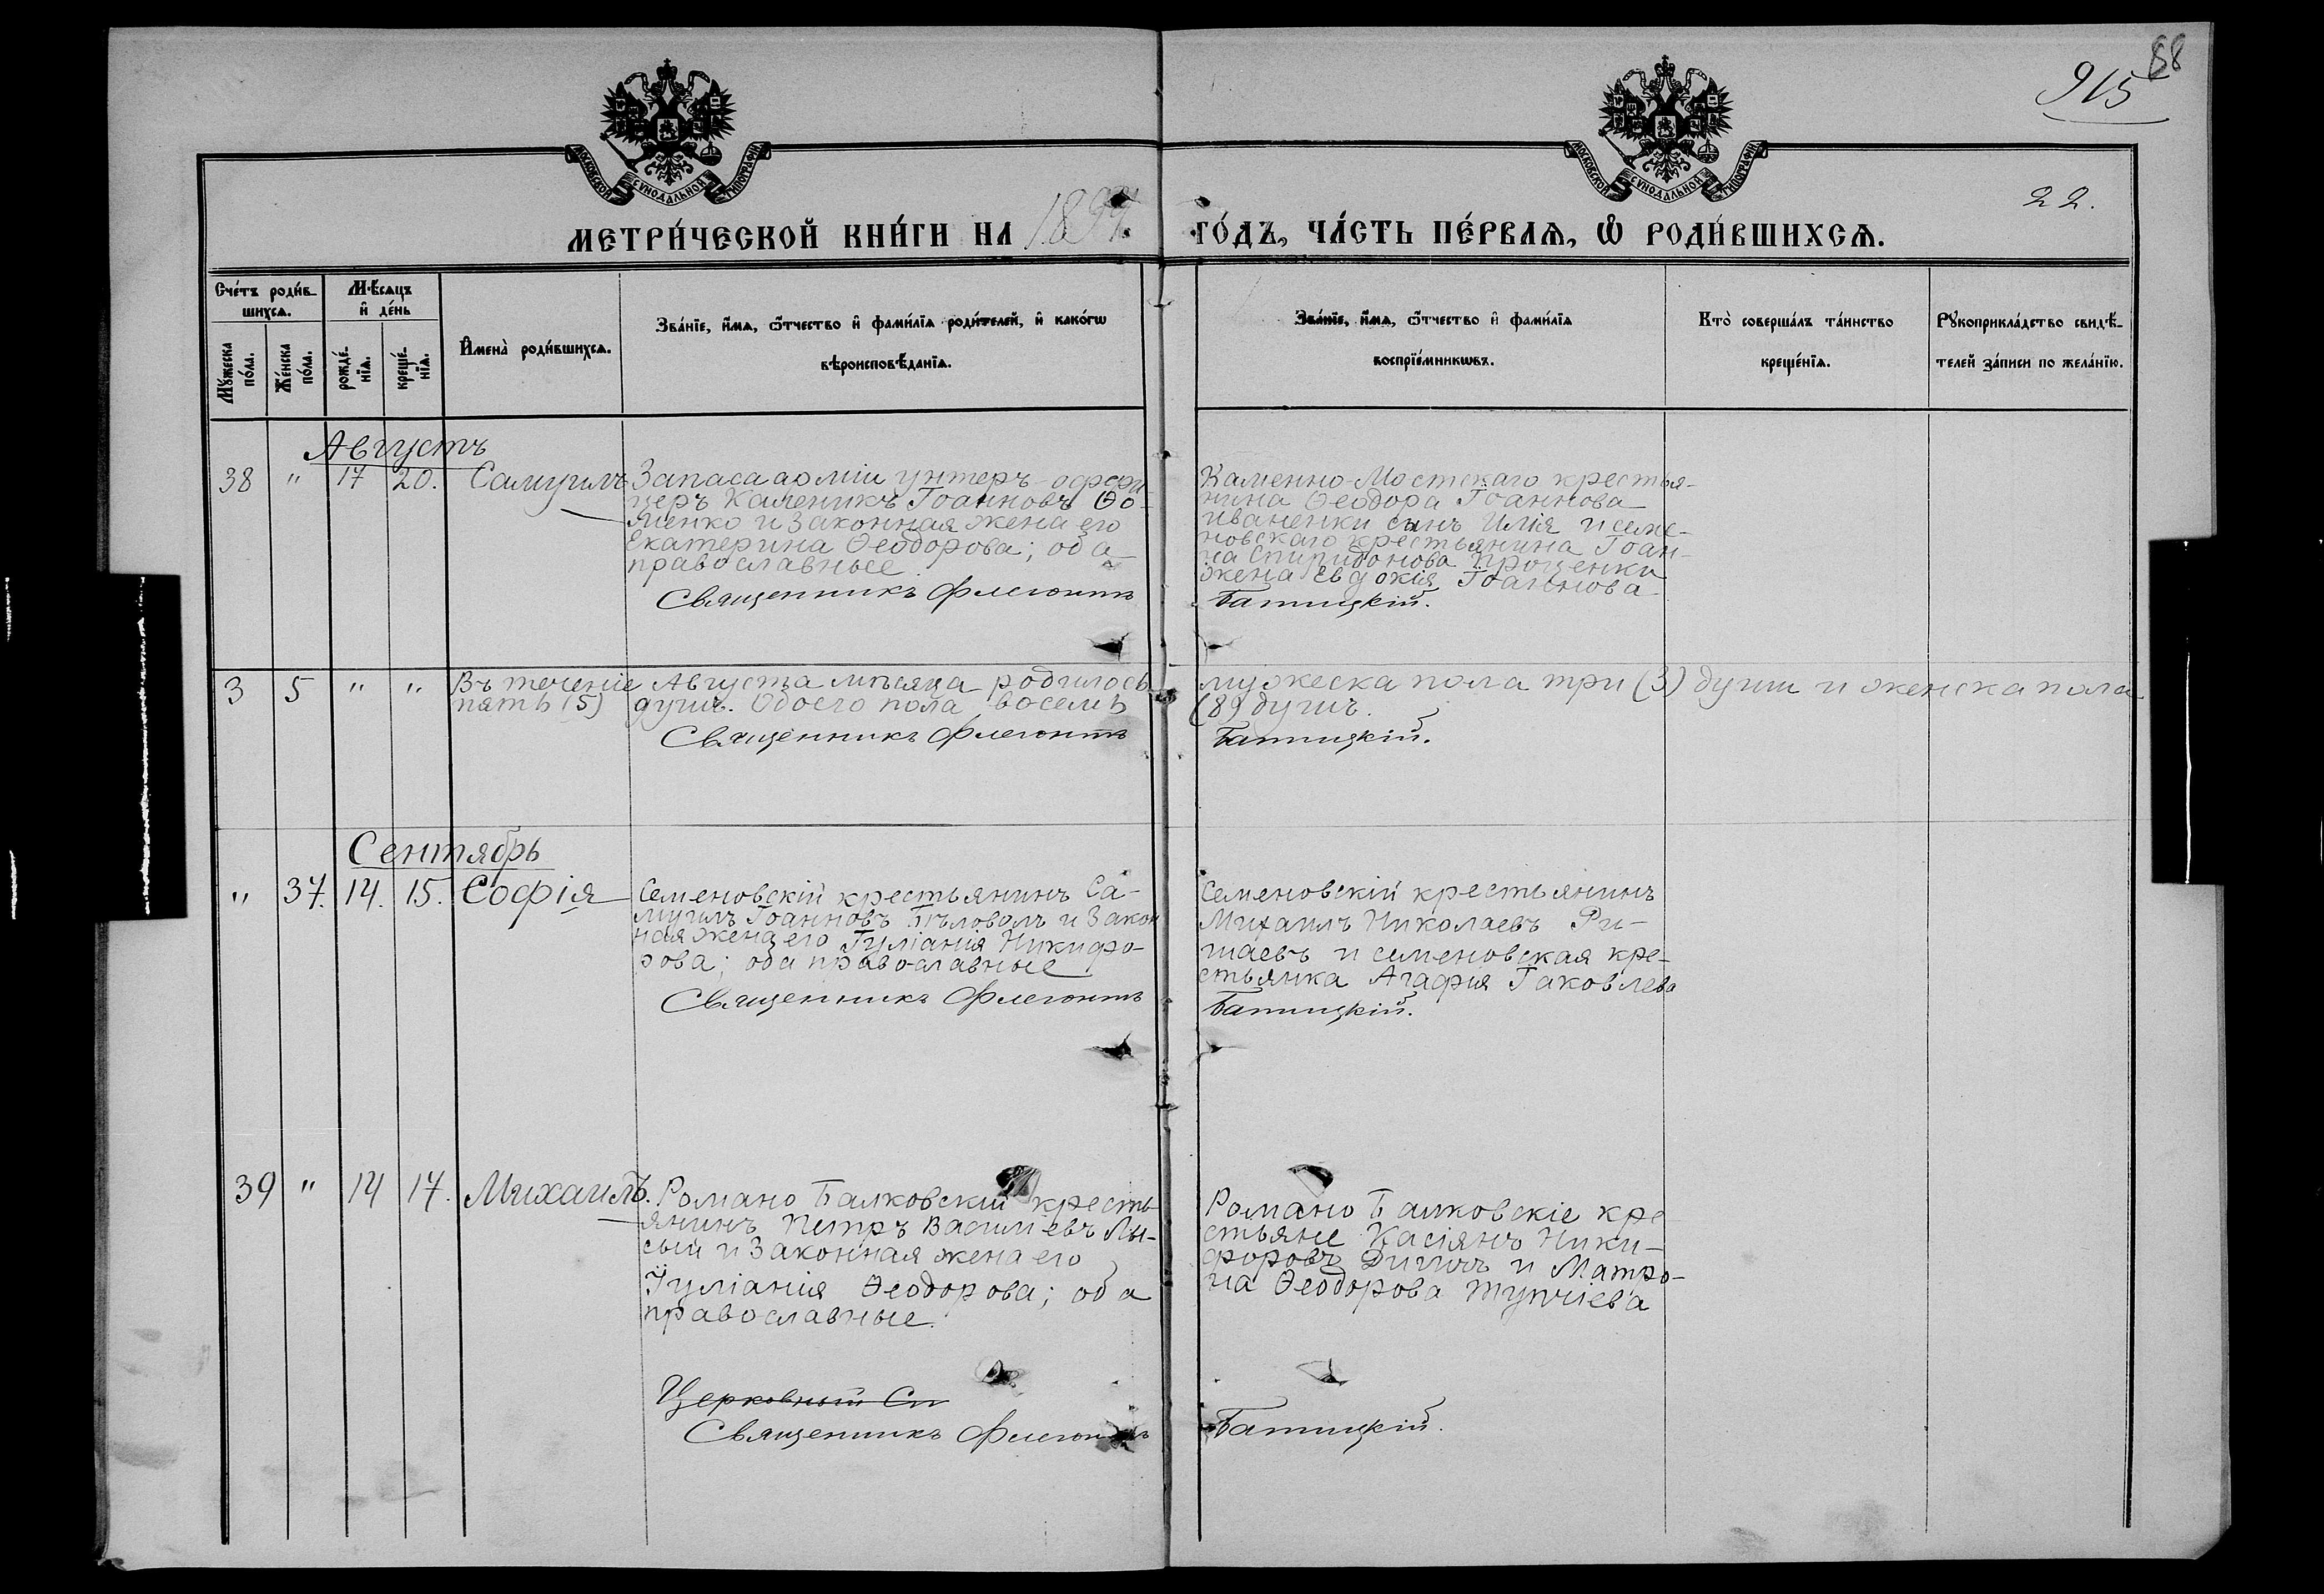 88
915
22.
МОСКОВСКОЙ СѴНОДАЛЬНОЙ ТИПОГРАФІИ
МОСКОВСКОЙ СѴНОДАЛЬНОЙ ТИПОГРАФІИ
МЕТРИ́ЧЕСКОЙ КНИ́ГИ НА 1899 ГО́ДЪ, ЧА́СТЬ ПЕ́РВАѦ, Ѡ҆ РОДИ́ВШИХСѦ.
Сче́тъ роди́в-
шихсѧ.
Мꙋ́жеска
по́ла.
Же́нска
по́ла.
Мѣ́сѧцъ
и҆ де́нь
рожде́-
нїѧ.
креще́-
нїѧ.
И҆мена̀ роди́вшихсѧ.
Зва́нїе, и҆́мѧ, ѻ҆́тчество и҆ фами́лїѧ роди́телей, и҆ како́гѡ
вѣроисповѣ́данїѧ.
Зва́нїе, и҆́мѧ, ѻ҆́тчество и҆ фами́лїѧ
воспрїе́мникѡвъ.
Кто̀ соверша́лъ та́инство
креще́нїѧ.
Рꙋкоприкла́дство свидѣ́-
телей за́писи по жела́нїю.
Августъ
38 " 17 20. Самуилъ
Запаса арміи унтеръ-офи
церъ Каленикъ Іоанновъ Ѳо-
менко и законная жена его
Екатерина Ѳеодорова; оба
православные.
Священникъ Флегонтъ
Каменно-Мостскаго крестья-
нина Ѳеодора Іоаннова
Иваненки сынъ Илія и семе-
новскаго крестьянина Іоан-
на Спиридонова Проценки
жена Евдокія Іоаннова
Батицкій.
3 5 " " Въ теченіе Августа мѣсяца родилось мужеска пола три (3) души и женска пола
пять (5) душъ. Обоего пола восемь (8) душъ.
Священникъ Флегонтъ Батицкій.
Сентябрь
" 37. 14. 15. Софія
Семеновскій крестьянинъ Са-
муилъ Іоанновъ Бѣловолъ и закон
ная жена его Іуліанія Никифо-
рова; оба православные
Священникъ Флегонтъ
Семеновскій крестьянинъ
Михаилъ Николаевъ Ри-
шаевъ и семеновская кре-
стьянка Агафія Іаковлева
Батицкій.
39 " 14 17. Михаилъ.
Романо Балковскій кресть-
янинъ Петръ Василіевъ Лы-
сый и законная жена его
Іуліанія Ѳеодорова; оба
православные.
Церковный Сп
Священникъ Флегонтъ
Романо Балковскіе кре
стьяне Касіянъ Ники-
форовъ и Матро-
на Ѳеодорова
Батицкій.